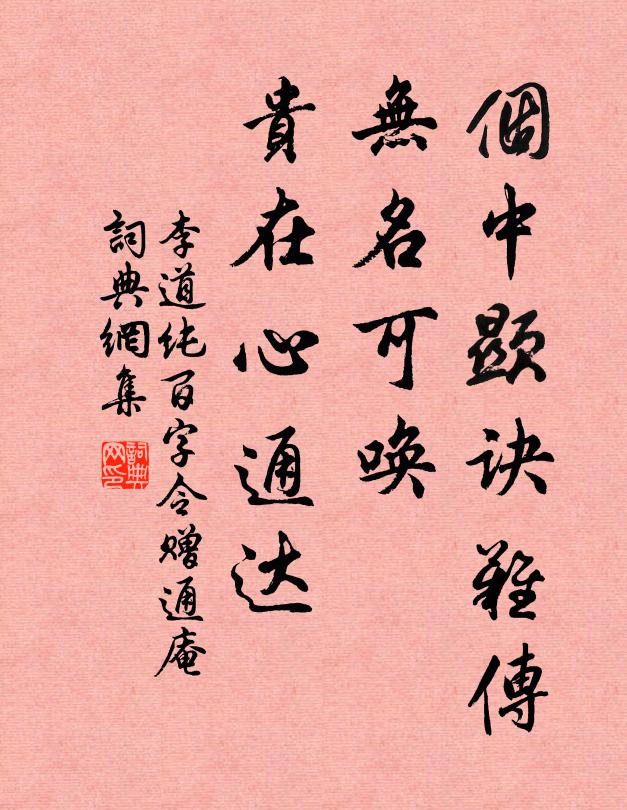 個中顯訣難傳
無名可喚
貴在心通达
李道純百字令贈通庵
詞典網集
詞典
网印